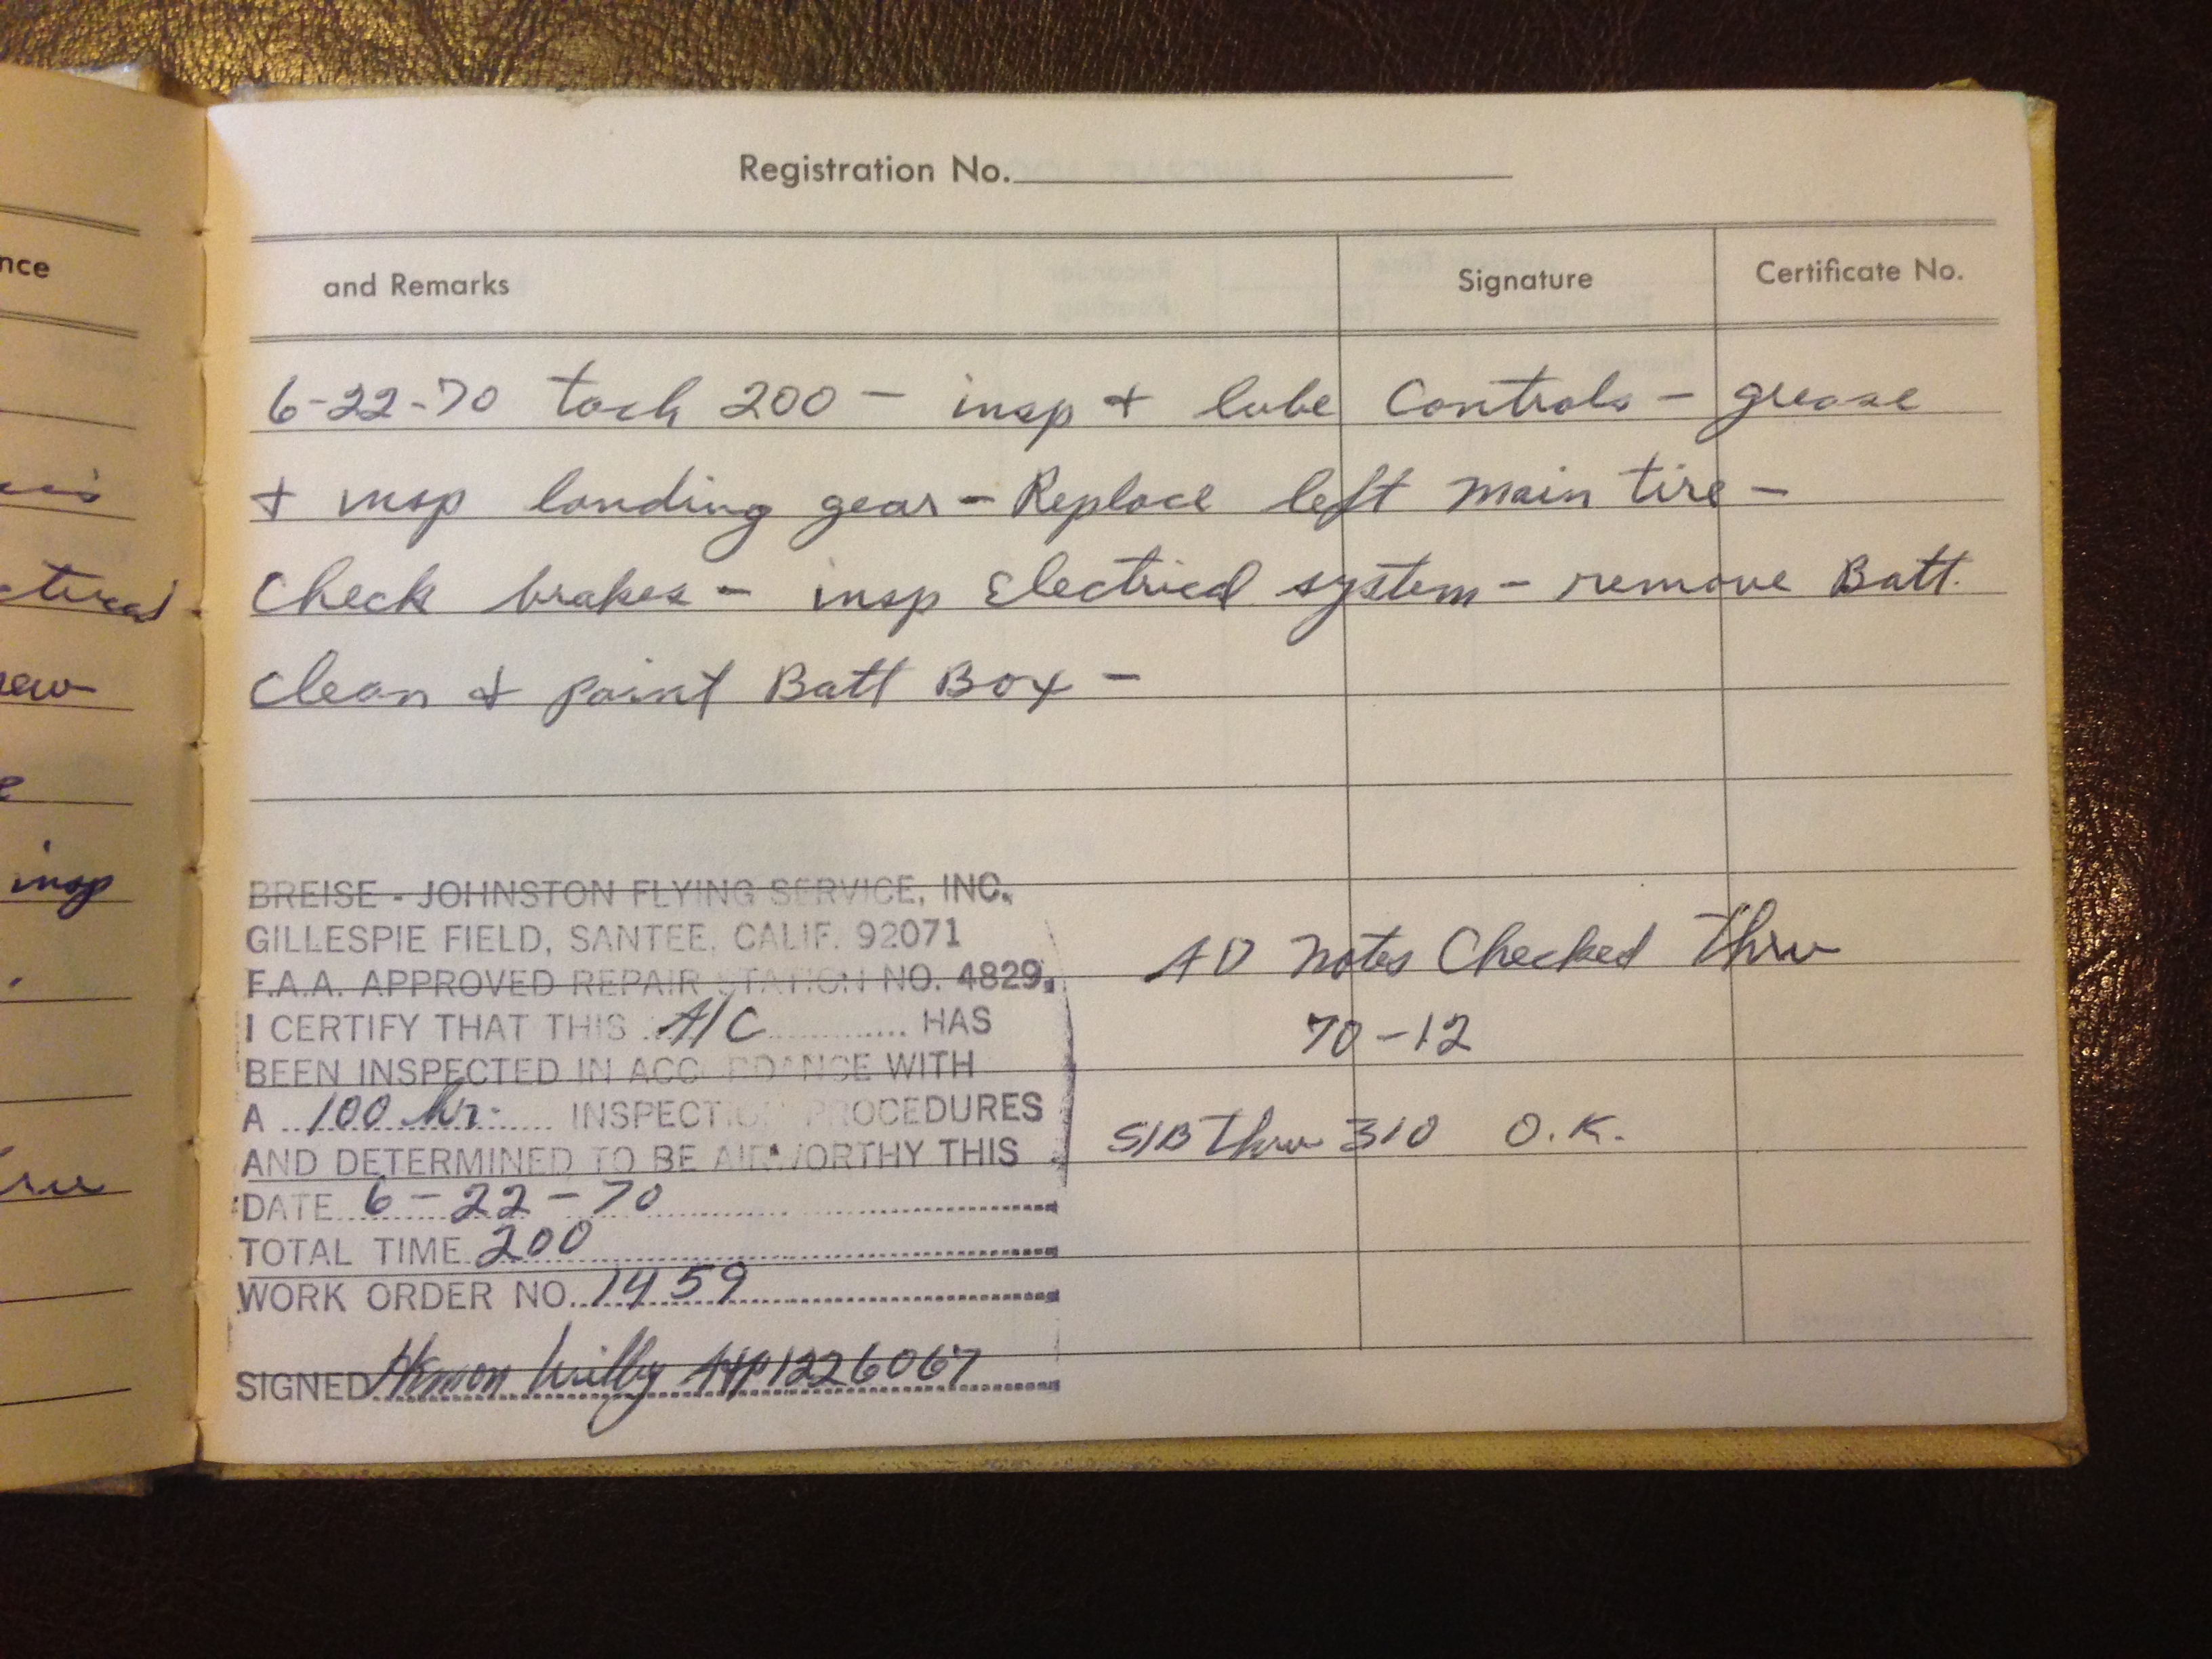 Registration No.
and Remarks Signature Certificate No.
6-22-70 tach 200 - insp + lube Controls - grease
+ insp landing gear - Replace left main tire -
Check brakes - insp Electrical system - remove Batt.
Clean + paint Batt Box -
BREISE - JOHNSTON FLYING SERVICE, INC.
GILLESPIE FIELD, SANTEE, CALIF. 92071
F.A.A. APPROVED REPAIR STATION NO. 4829.
I CERTIFY THAT THIS A/C HAS
BEEN INSPECTED IN ACCORDANCE WITH
A 100 hr. INSPECTION PROCEDURES
AND DETERMINED TO BE AIRWORTHY THIS
DATE 6-22-70
TOTAL TIME 200
WORK ORDER NO. 1459
SIGNED Willy A&P1226067
AD Notes Checked Thru
70-12
S/B thru 310 O.K.
nce
ew
insp